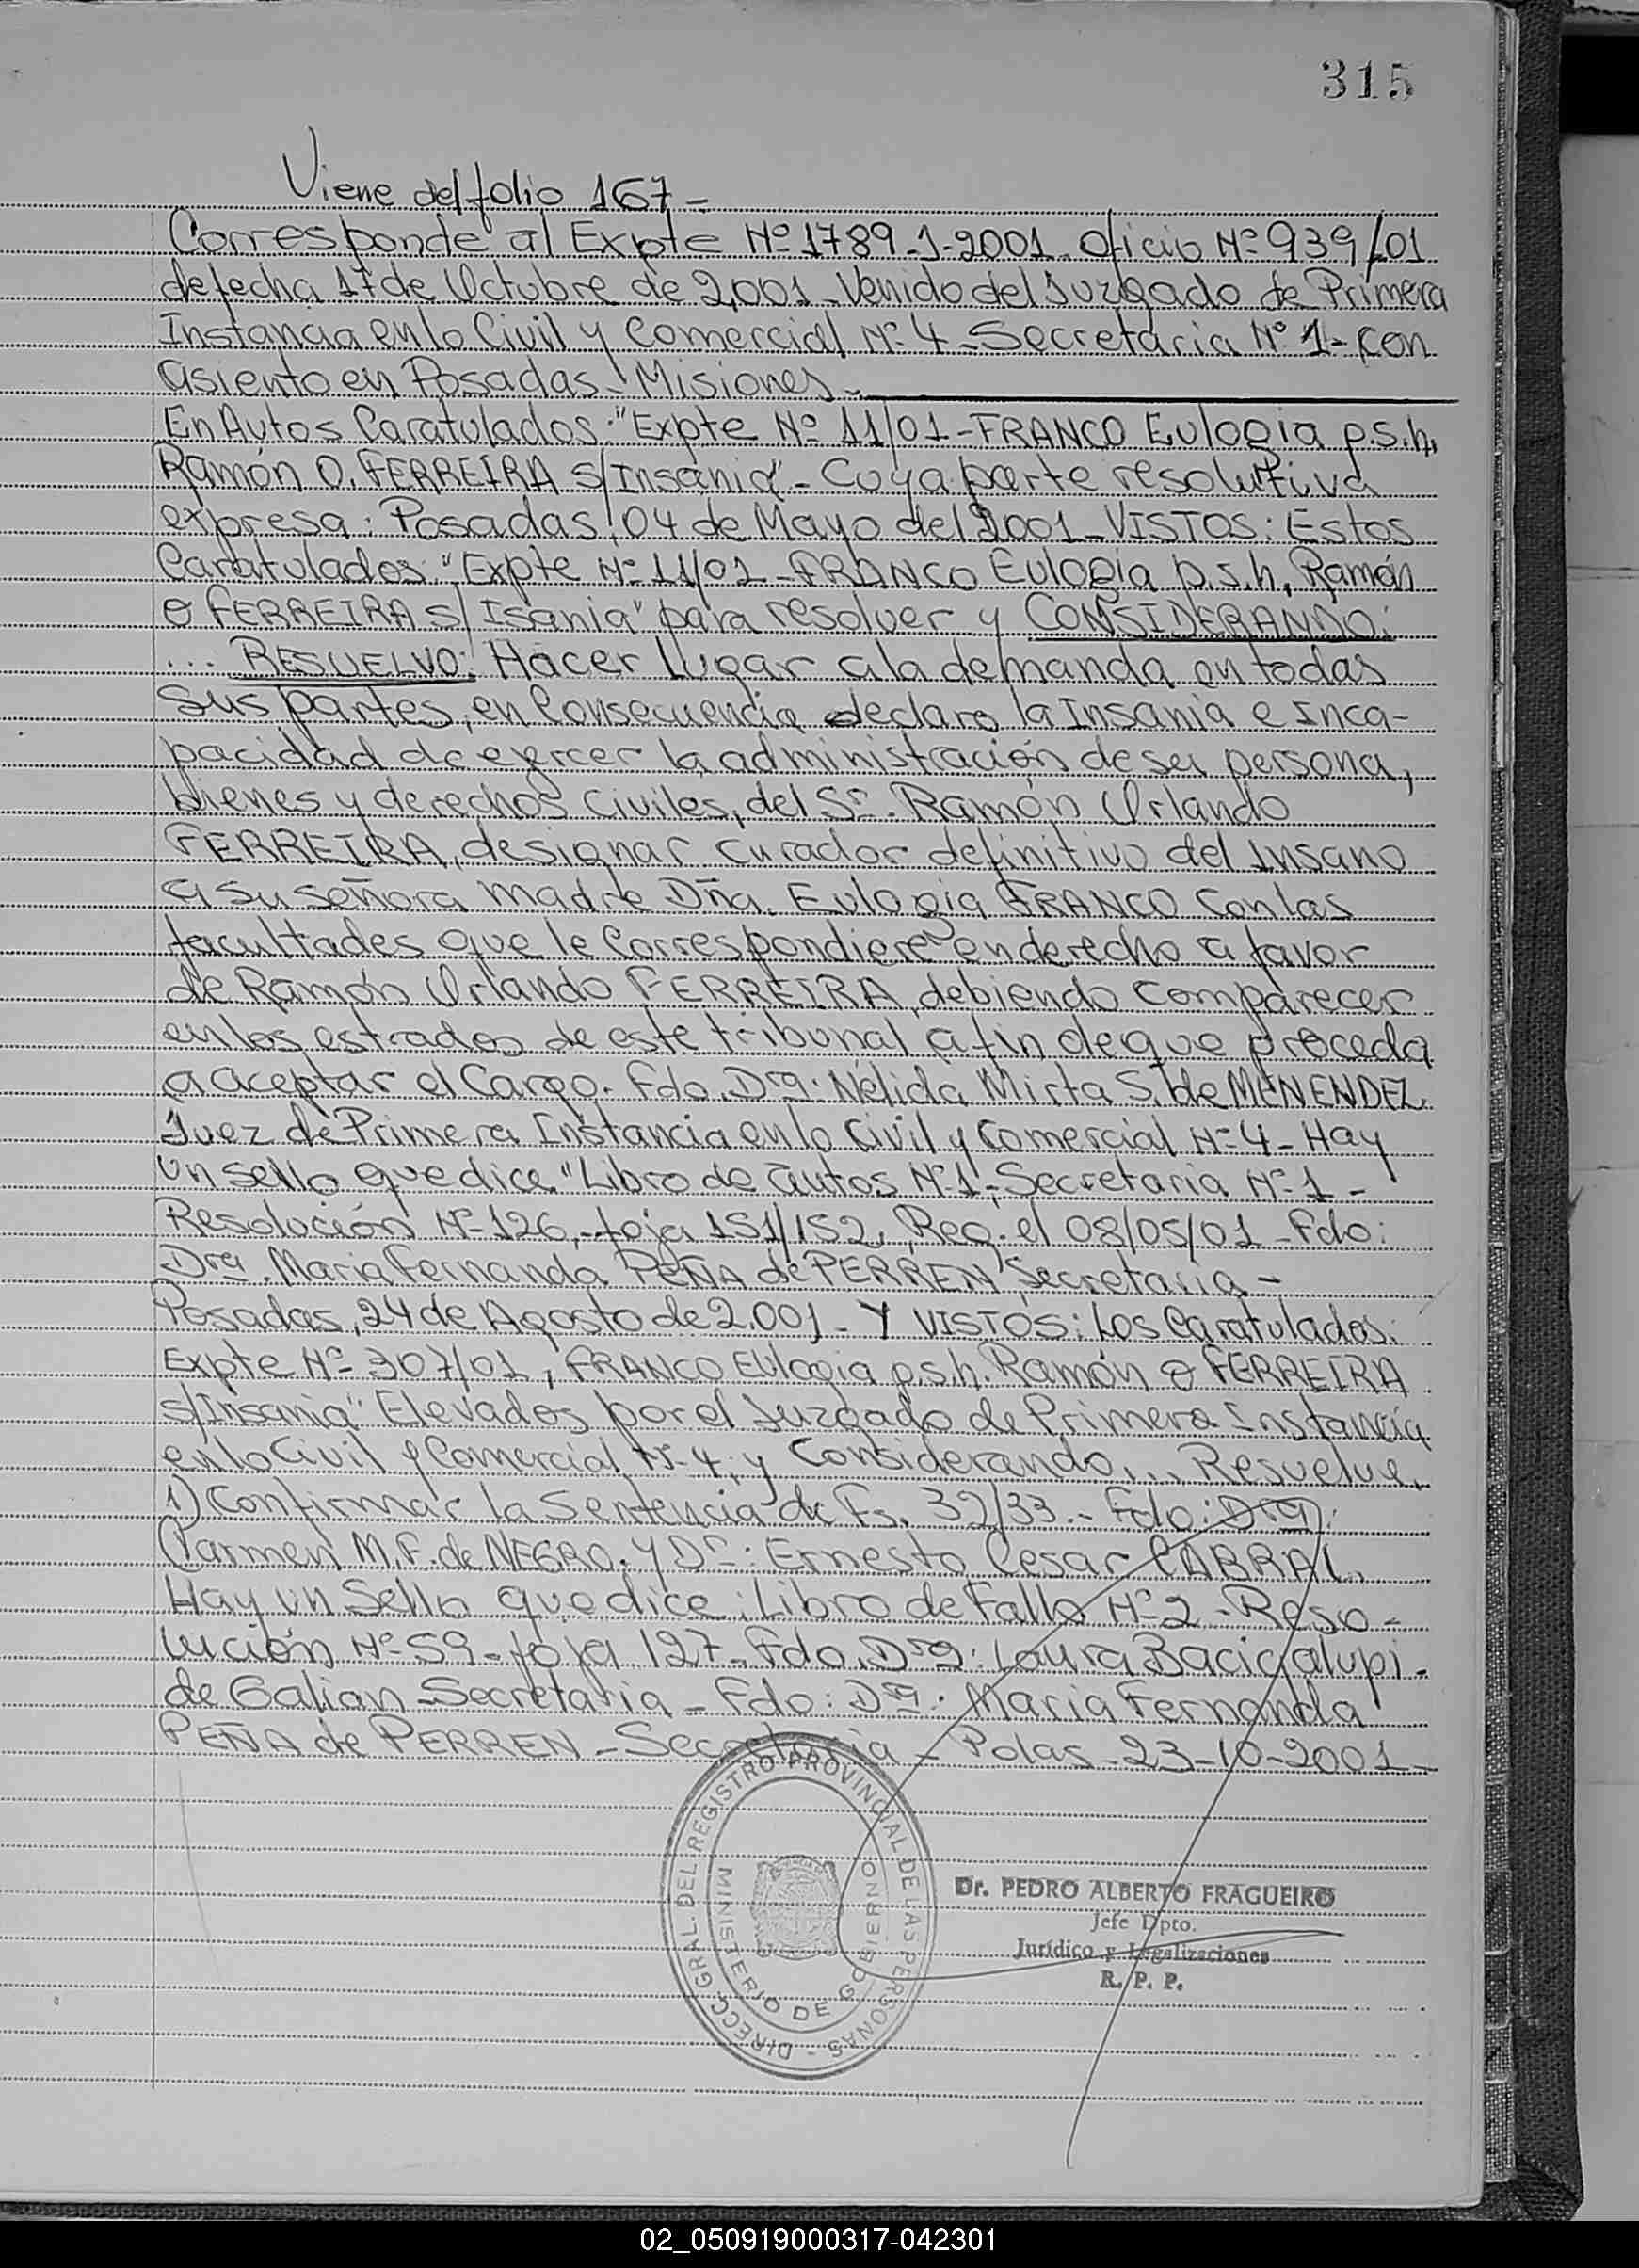 315
Viene del folio 167-
Corresponde al Expte Nº 1789-J-2001. Oficio Nº 939/01
de fecha 17 de Octubre de 2,001- Venido del Juzgado de Primera
Instancia en lo Civil y Comercial Nº 4- Secretaria Nº 1- con
asiento en Posadas- Misiones-
En Autos Caratulados: "Expte Nº 11/01-FRANCO Eulogia p.s.h,
Ramón O. FERREIRA s/Insania"- Cuya parte resolutiva
expresa: Posadas, 04 de Mayo del 2001- VISTOS: Estos
Caratulados "Expte Nº 11/01-FRANCO Eulogia p.s.h, Ramón
O FERREIRA s/ Isania" para resolver y CONSIDERANDO:
... RESUELVO: Hacer lugar a la demanda en todas
sus partes, en Consecuencia declaro la Insania e Inca-
pacidad de ejercer la administración de su persona,
bienes y derechos Civiles, del Sr. Ramón Orlando
FERREIRA, designar curador definitivo del Insano
a su señora madre Dña. Eulogia FRANCO con las
facultades que le Correspondiere en derecho a favor
de Ramón Orlando FERREIRA, debiendo comparecer
en los estrados de este tribunal a fin de que proceda
a aceptar el Cargo. Fdo. Dra. Nélida Mirta S. de MENENDEZ
Juez de Primera Instancia en lo Civil y Comercial Nº 4- Hay
un sello que dice "Libro de autos Nº 1- Secretaria Nº 1-
Resolución Nº 126, foja 151/152, Reg. el 08/05/01- Fdo:
Dra. Maria Fernanda PEÑA de PERREN Secretaria-
Posadas, 24 de Agosto de 2.001- Y VISTOS: Los Caratulados:
Expte Nº 307/01, FRANCO Eulogia p.s.h. Ramón O FERREIRA
s/Insania" Elevados por el Juzgado de Primera Instancia
en lo Civil y Comercial Nº 4, y Considerando... Resuelve,
1) Confirmar la Sentencia de Fs. 32/33.- Fdo: Dra:
Carmen M.F. de NEGRO. y Dr: Ernesto Cesar CABRAL,
Hay un Sello que dice: Libro de Fallo Nº 2- Reso-
lución Nº 59- foja 127- Fdo. Dra: Laura Bacigalupi-
de Galian- Secretaria- Fdo: Dra. Maria Fernanda
PEÑA de PERREN- Secretaria- Pdas- 23-10-2001-
DIRECC. GRAL. DEL REGISTRO PROVINCIAL DE LAS PERSONAS -
MINISTERIO DE GOBIERNO
Dr. PEDRO ALBERTO FRAGUEIRO
Jefe Dpto.
Jurídico y Legalizaciones
R. P. P.
02_050919000317-042301